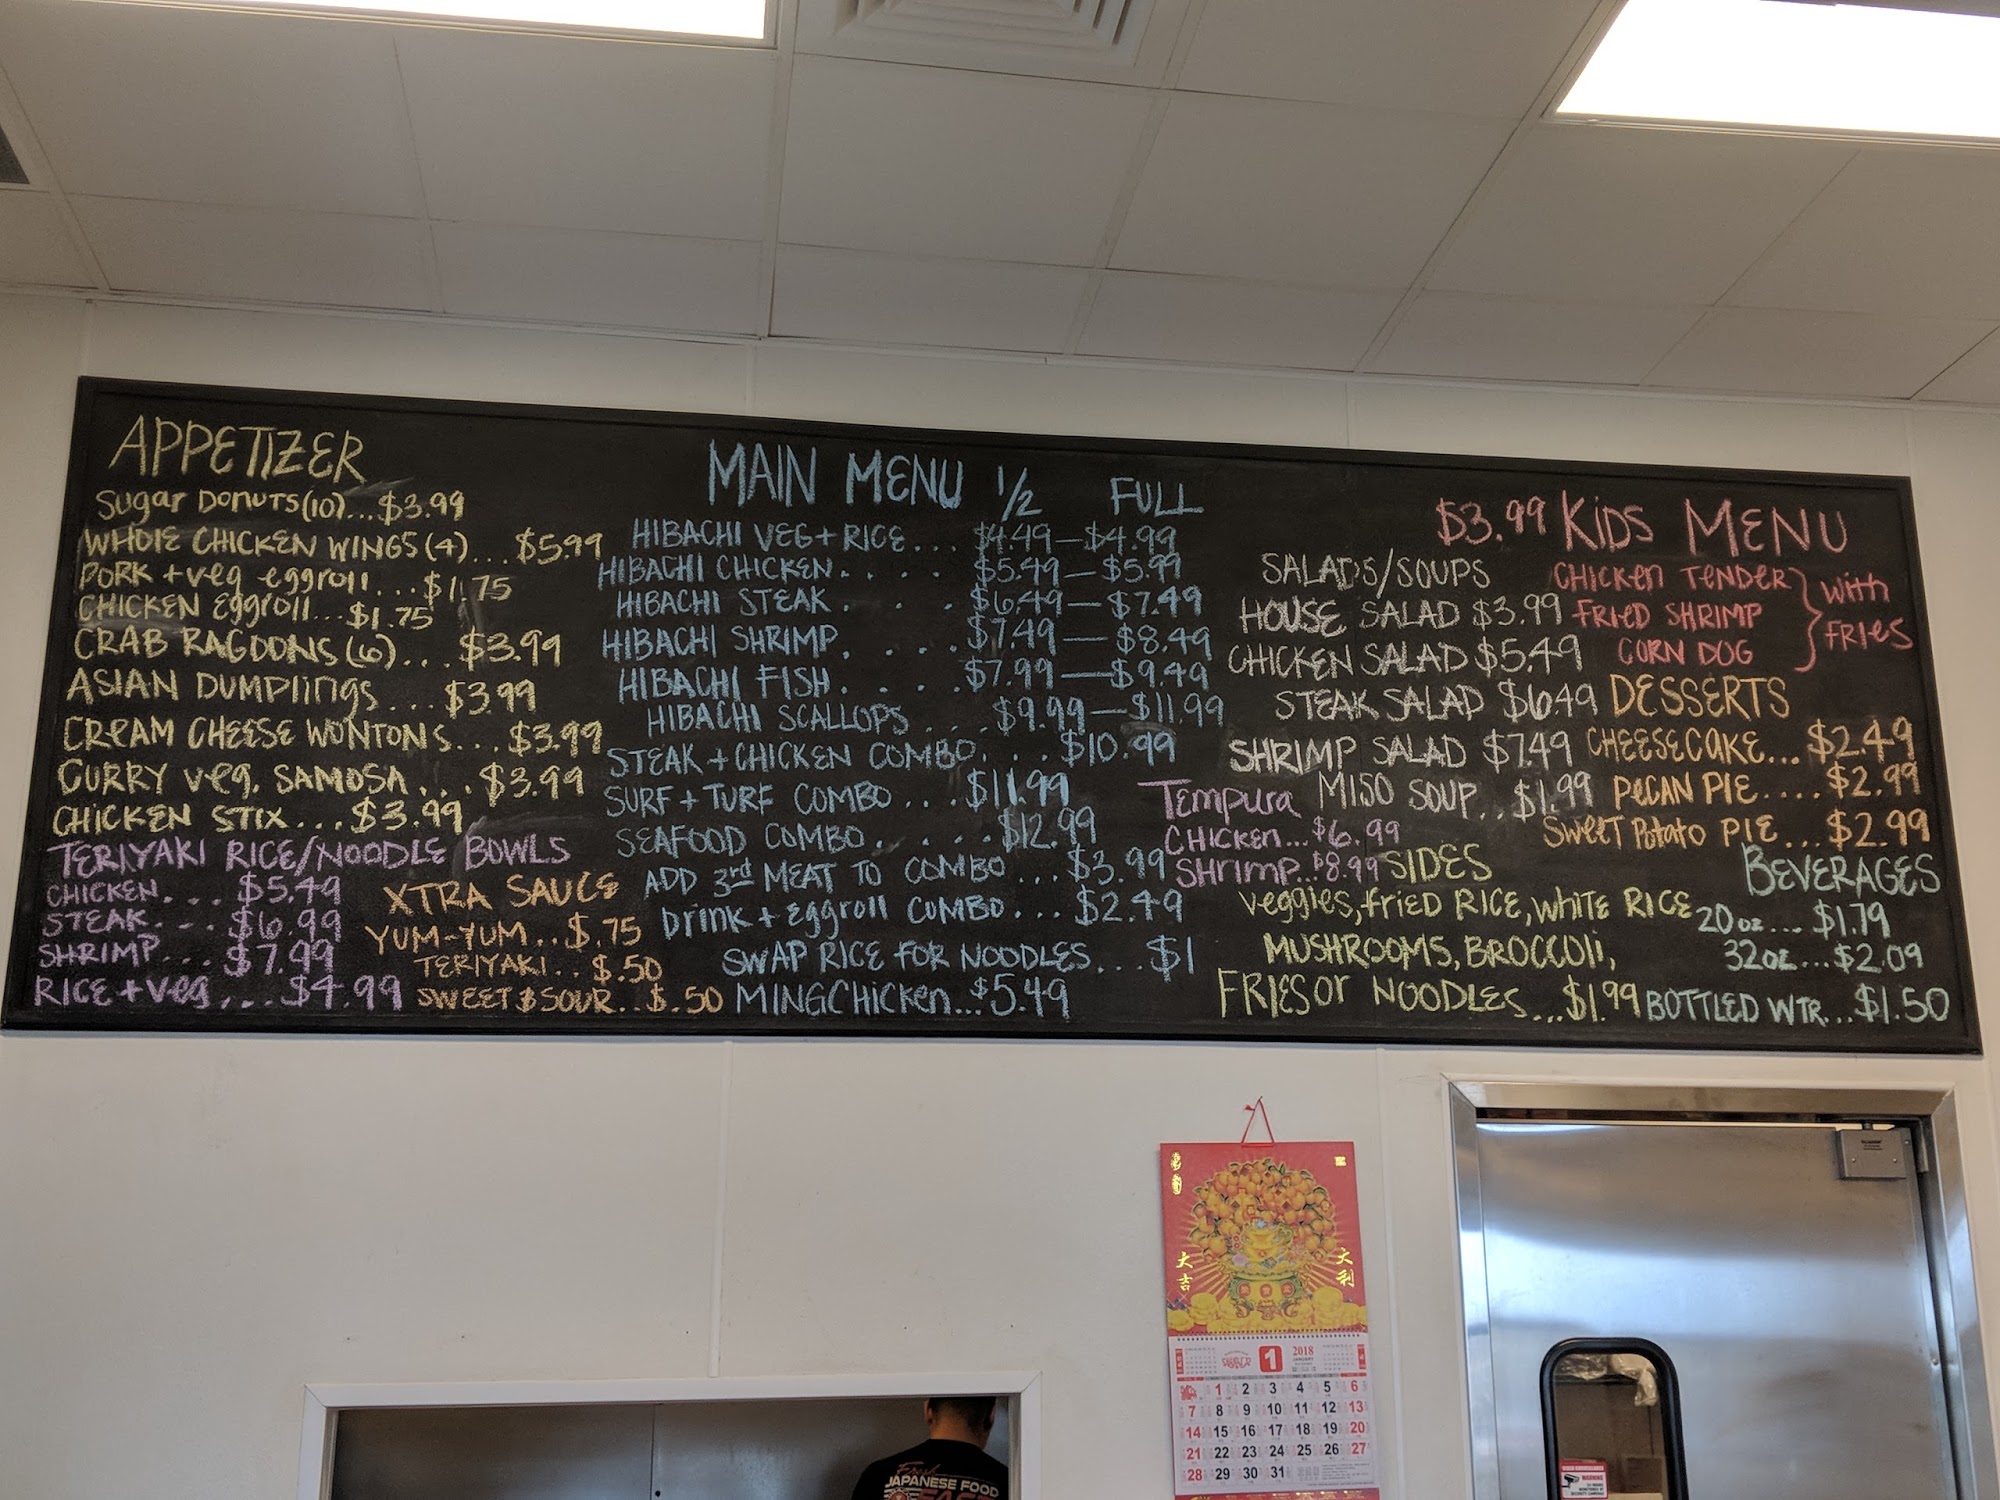 APPETIZER
Sugar Donuts (10)...$3.99
WHOLE CHICKEN WINGS (4)...$5.99
PORK + veg eggroll...$1.75
CHICKEN eggroll...$1.75
CRAB RAGOONS (6)...$3.99
ASIAN DUMPlings...$3.99
CREAM CHEESE WONTONS...$3.99
CURRY veg. SAMOSA...$3.99
CHICKEN STIX...$3.99
TERIYAKI RICE/NOODLE BOWLS
CHICKEN...$5.49
STEAK...$6.99
SHRIMP...$7.99
RICE + veg...$4.99
XTRA SAUCE
YUM-YUM..$.75
TERIYAKI..$.50
SWEET & SOUR..$.50
MAIN MENU 1/2 FULL
HIBACHI VEG + RICE...$4.49—$4.99
HIBACHI CHICKEN....$5.49—$5.99
HIBACHI STEAK....$6.49—$7.49
HIBACHI SHRIMP....$7.49—$8.49
HIBACHI FISH....$7.99—$9.49
HIBACHI SCALLOPS...$9.99—$11.99
STEAK + CHICKEN COMBO...$10.99
SURF + TURF COMBO...$11.99
SEAFOOD COMBO....$12.99
ADD 3rd MEAT TO COMBO...$3.99
Drink + eggroll COMBO...$2.49
SWAP RICE FOR NOODLES...$1
MINGCHICKEN...$5.49
SALADS/SOUPS
HOUSE SALAD $3.99
CHICKEN SALAD $5.49
STEAK SALAD $6.49
SHRIMP SALAD $7.49
MISO SOUP..$1.99
Tempura
CHICKEN...$6.99
Shrimp...$8.99
SIDES
veggies, fried RICE, WHITE RICE
MUSHROOMS, BROCCOLI,
FRIES or NOODLES...$1.99
$3.99 KIDS MENU
CHICKEN TENDER
FRIED SHRIMP
CORN DOG
With
FRIES
DESSERTS
CHEESECAKE...$2.49
PECAN PIE....$2.99
SWEET POTATO PIE...$2.99
BEVERAGES
20oz...$1.79
32oz...$2.09
BOTTLED WTR...$1.50
大吉
大利
1
2018
JANUARY
1 2 3 4 5 6
7 8 9 10 11 12 13
14 15 16 17 18 19 20
21 22 23 24 25 26 27
28 29 30 31
Fresh
JAPANESE FOOD
FAST
WARNING